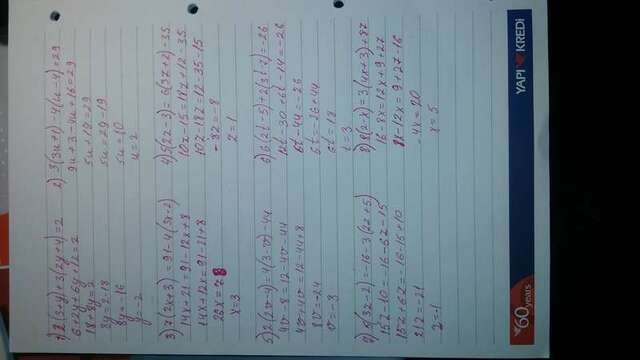 1) 2(3+y)+3(2y+4)=2
6+2y+6y+12=2
18+8y=2
8y=2-18
8y=-16
y=-2
2) 3(3u+1)-4(u-4)=29
9u+3-4u+16=29
5u+19=29
5u=29-19
5u=10
u=2
3) 7(2x+3)=91-4(3x-2)
14x+21=91-12x+8
14x+12x=91-21+8
26x=78
x=3
4) 5(2z-3)=6(3z+2)-35
10z-15=18z+12-35
10z-18z=12-35-15
-8z=-8
z=1
5) 2(2v-4)=4(3-v)-44
4v-8=12-4v-44
4v+4v=12-44+8
8v=-24
v=-3
6) 6(2t-5)+2(3t-7)=-26
12t-30+6t-14=-26
6t-44=-26
6t=-26+44
6t=18
t=3
7) 5(3z-2)=-16-3(2z+5)
15z-10=-16-6z-15
15z+6z=-16-15+10
21z=-21
z=-1
8) 8(2-x)=3(4x+3)+87
16-8x=12x+9+27
8x-12x=9+27-16
-4x=20
x=5
60 years
YAPI KREDi